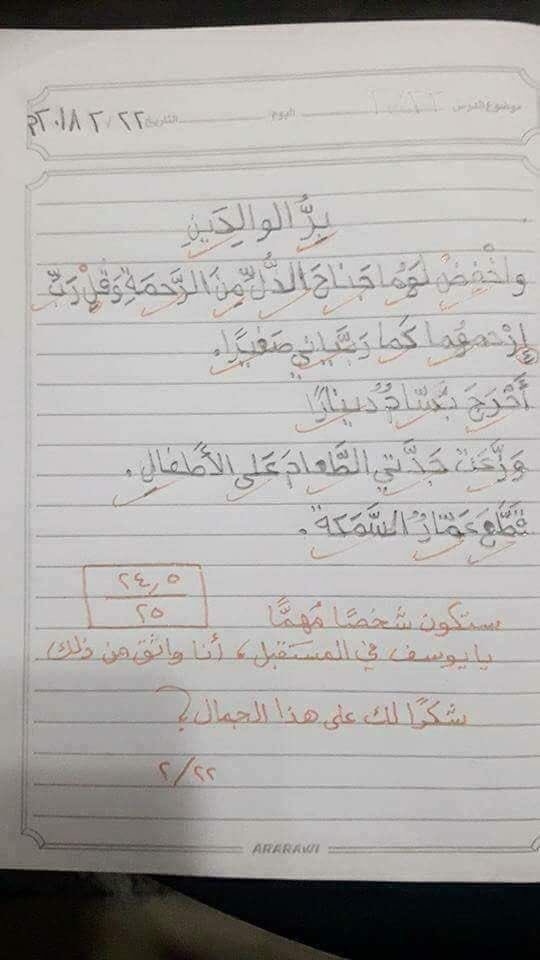 موضوع الدرس اليوم التاريخ ٢٢/٢/٢٠١٨م
بِرُّ الوالِدَينِ
واخْفِضْ لَهُما جَناحَ الذُّلِّ مِنَ الرَّحمَةِ وَقُلْ رَبِّ
ارْحمهُما كَما رَبَّياني صَغيرًا.
أَخْرَجَ بَسّامٌ دينارًا
وَزَّعَتْ جَدَّتي الطَّعامَ عَلى الأَطفالِ.
قَطَّعَ عَمّارُ السَّمَكَةَ.
٢٤,٥
٢٥
ستكون شخصًا مُهمًّا
يا يوسف في المستقبل، أنا واثق من ذلك
شكرًا لك على هذا الجمال
٢/٢٢
ARARAWI